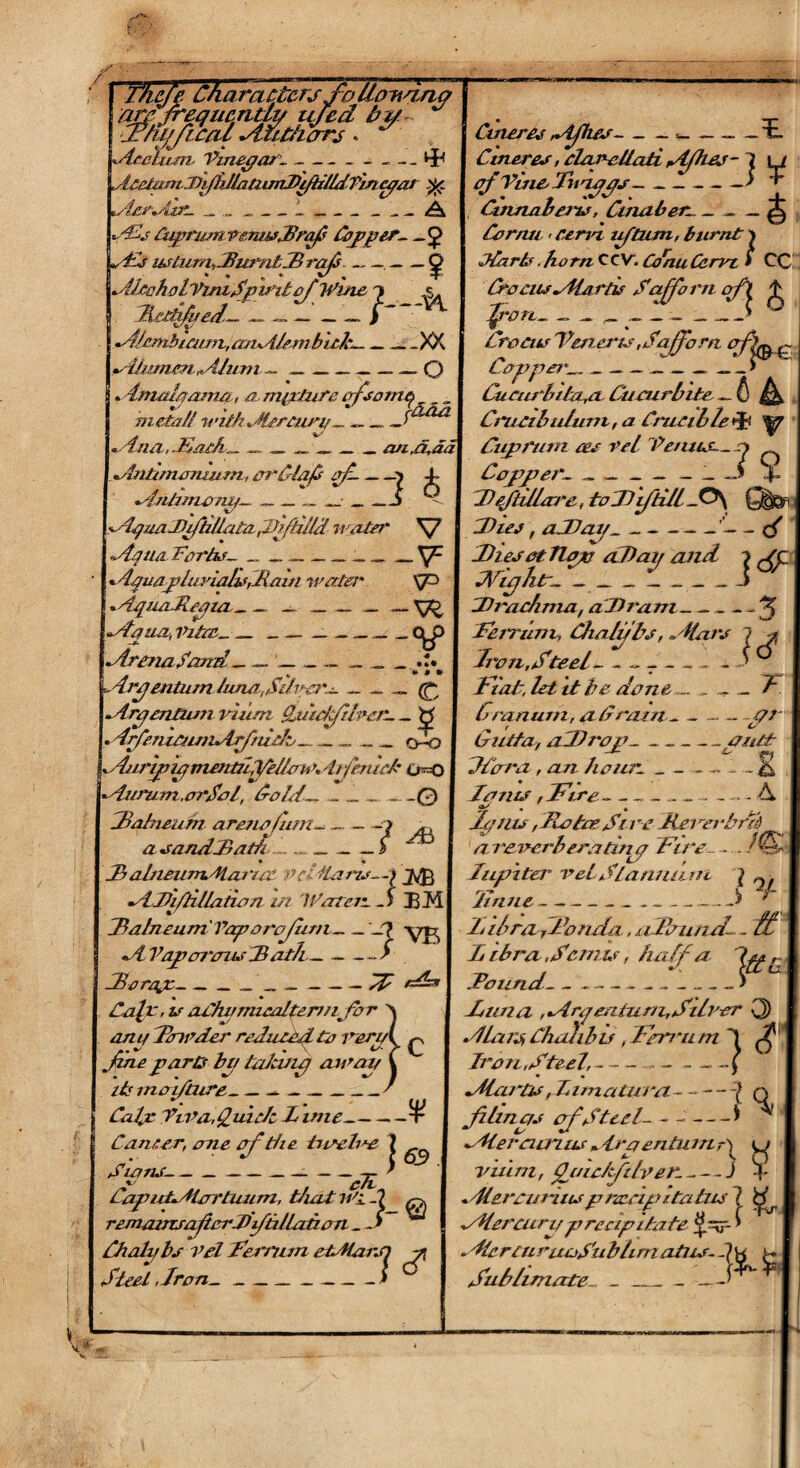 These Characters following
are frequently used by
Physical Authors.
Acetum Vinegar
Acetum Distillatum Distilld Vinegar
Aer. Air
Æs Cuprum venus, Brass Copper
Æs ustum, Burnt Brass
Alcohol Vini Spirit of Wine
Rectifyed
Alembicum, an Alembick XX
Alumen, Alum
Amalgama, a mixture of some
metall with Mercury aaaa
Ana, Each an,a,aa
Antimonium, or Glass of
Antimony
Aqua Distillata, Distilld water
Aqua Fortis
Aqua pluvialis, Rain water
Aqua Regia
Aqua, vitæ
Arena Sand
Argentum luna, Silver
Argentum vium Quicksilver
Arsenicum Arsnick
Auripigmentu, Yellow Arsenick
Aurum, or Sol, Gold
Balneum arenosum
a sand Bath AB
Balneum Mariæ vel Maris MB
A Distillation in Water BM
Balneum Vaporosum VB
A Vaporous Bath
Borax
Calx, is a Chymical term for
any Powder reduced to very
fine parts by taking away
its moisture C
Calx Viva, Quick Lime
Cancer, one of the twelve
Signs 69
Caput Mortuum, that wch
remains after Distillation
Chalybs vel Ferrum et Mars
Steel, Iron
Cineres, Ashes
Cineres, clavellati Ashes
of Vine Twiggs
Cinnaberis, Cinaber
Cornu Cervi ustum, burnt
Harts horn CCV. Cornu Cervi CC
Crocus Martis Safforn of
Iron
Crocus Veneris, Safforn of
Copper
Cucurbita, a Cucurbite
Crucibulum, a Crucible
Cuprum æs vel Venus
Copper
Destillare, to Distill
Dies, a Day
Dies et Nox a Day and
Night
Drachma, a Dram
Ferrum, Chalybs, Mars
Iron, Steel
Fiat, let it be done F
Granum, a Grain gr
Gutta, a Drop gutt
Hora, an hour
Ignis, Fire
Ignis, Rotæ Fire Reverbrd
a reverberating Fire
Iupiter vel Stannum
Tinne
Libra, Ponda, a Pound
Libra, Semis, half a
Pound
Luna, Argentum, Silver
Mars Chalibis, Ferrum
Iron, Steel,
Martis, Limatura
filings of Steel
Mercurius Argentum
vium, Quicksilver
Mercurius præcipitatus
Mercury precipitate
Mercurius Sublimatus
Sublimate